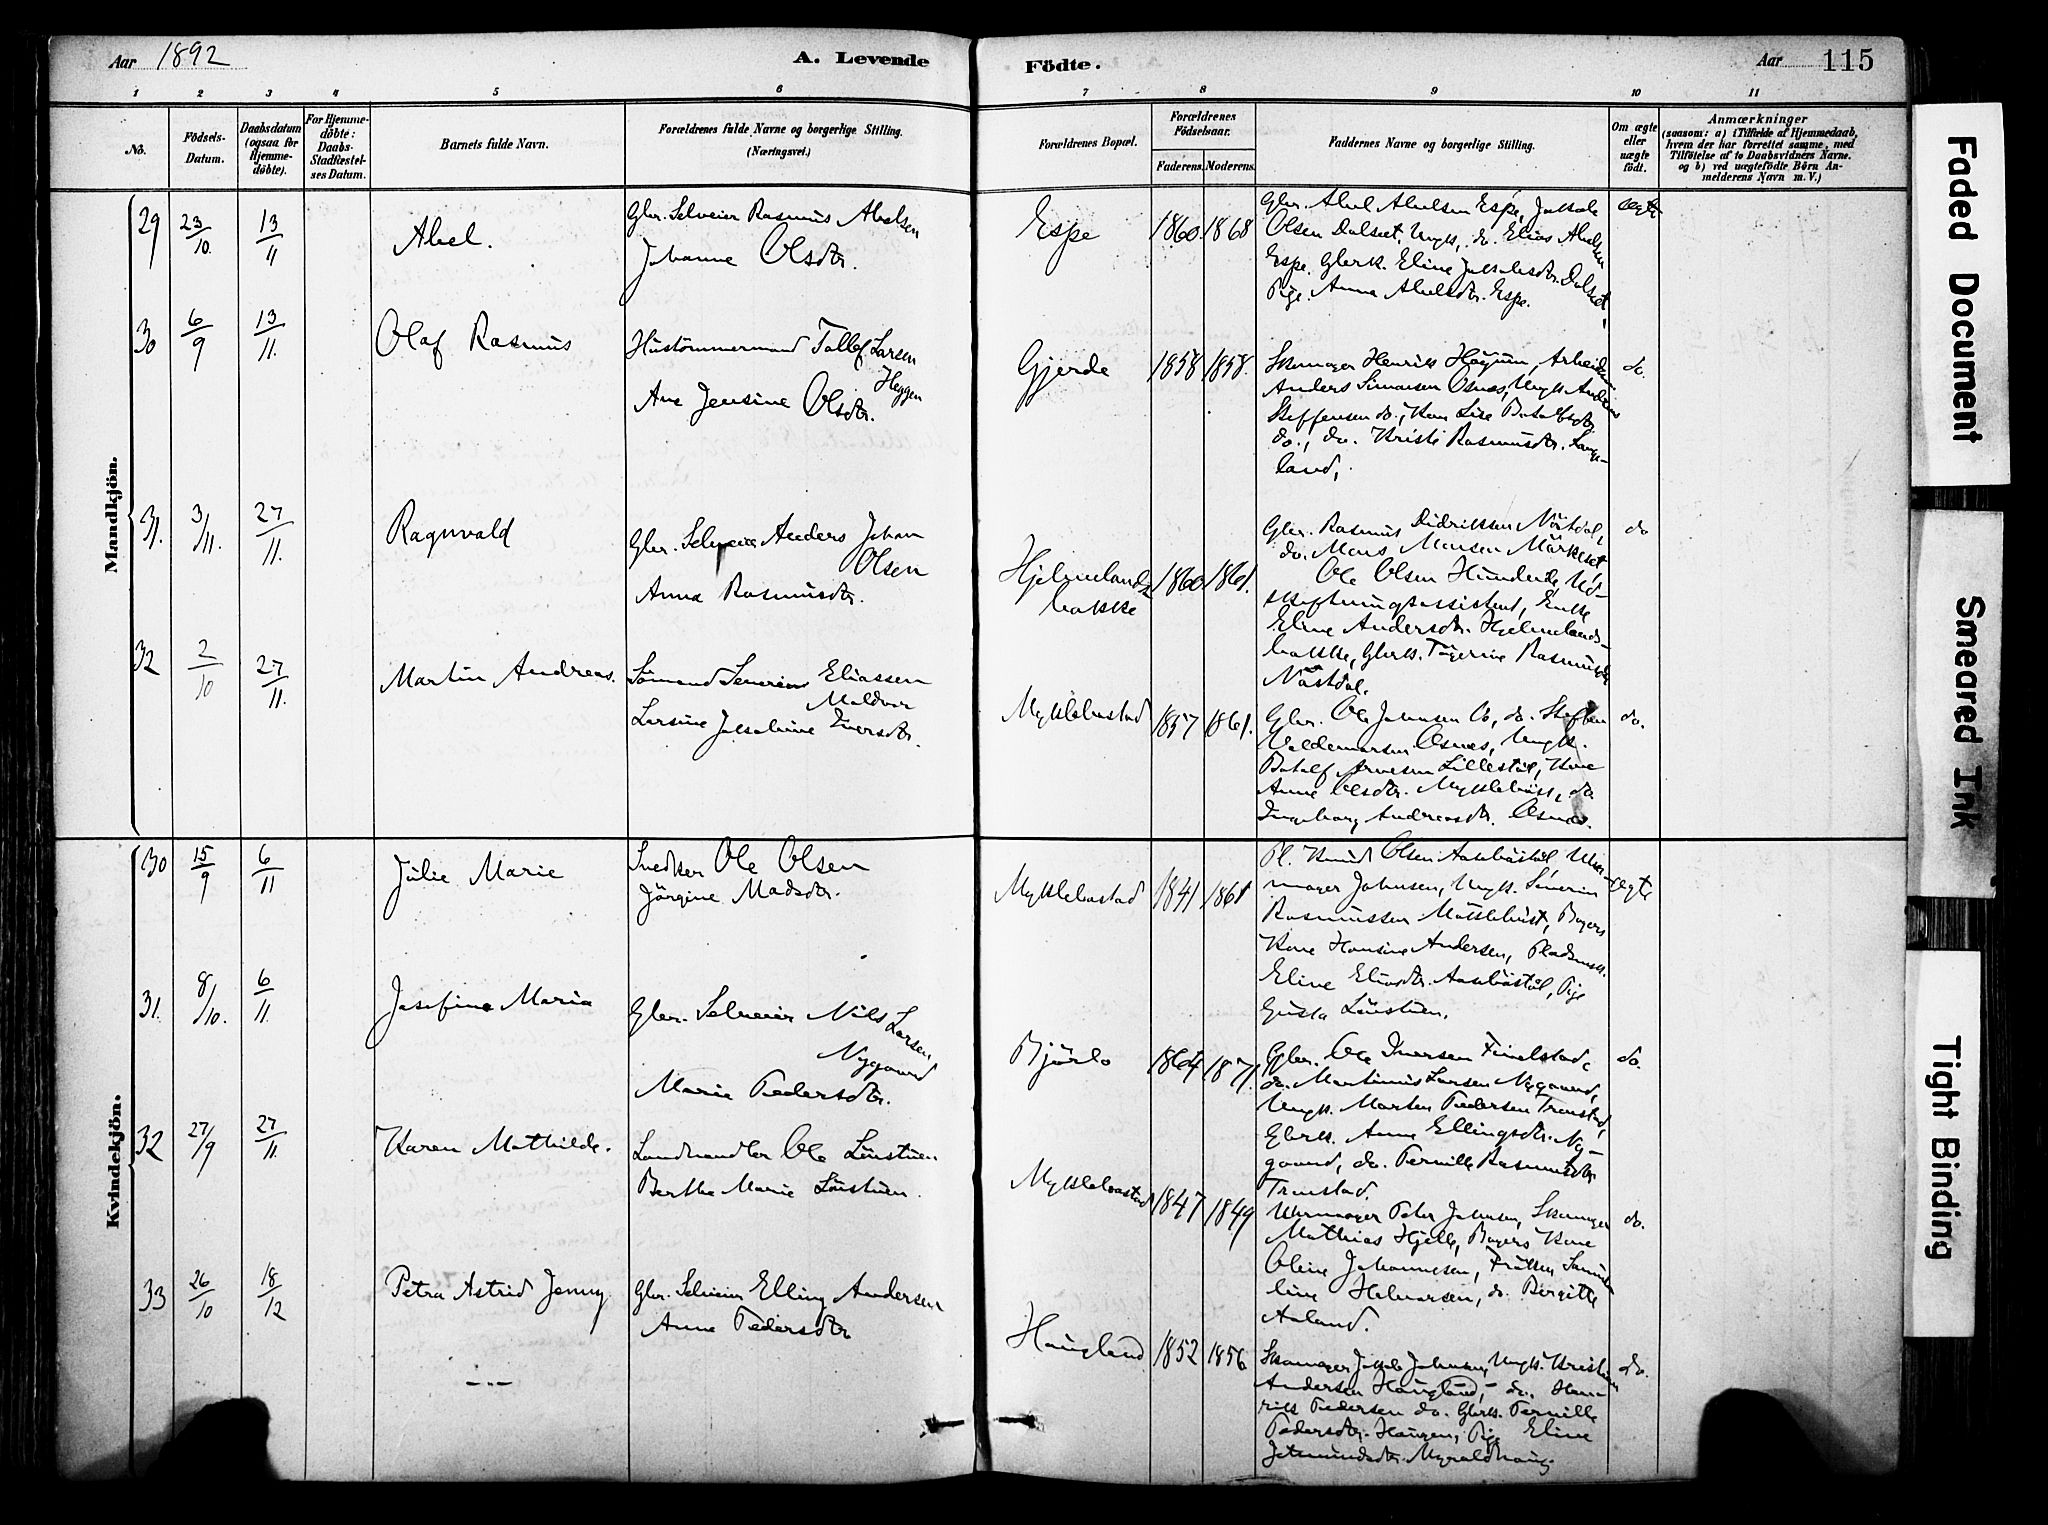 Aar 1892
A. Levende
Födte.
Aar
115
1 2 3 4 5 6 7 8 9 10 11
No.
Födsels-
Datum.
Daabsdatum
(ogsaa for
Hjemme-
døbte).
For Hjemme-
døbte:
Daabs-
Stadfæstel-
ses Datum.
Barnets fulde Navn.
Forældrenes fulde Navne og borgerlige Stilling.
(Næringsvei.)
Forældrenes Bopæl.
Forældrenes
Fødselsaar.
Faderens. Moderens.
Faddernes Navne og borgerlige Stilling.
Om ægte
eller
uægte
født.
Anmærkninger
(saasom: a) i Tilfælde af Hjemmedaab,
hvem der har forrettet samme, med
Tilföielse af to Daabsvidners Navne.
og b) ved uægtefödte Börn An-
melderens Navn m. V.)
Mandkjön.
29 23/10 13/11 Abel.
Gbr. Selveier Rasmus Abelsen
Johanne Olsdtr.
Espe 1860. 1868
Gbr. Abel Abelsen Espe, Jakob
Olsen Dalset, Ungk. do. Elias Abelsen
Espe. Gbrk. Eline Jakobsdtr. Dalset,
Pige. Anna Abelsdtr. Espe.
ægte
30 6/9 13/11. Olaf Rasmus
Hustömmermand Tollef Larsen
Heggen
Ane Jensine Olsdtr.
Gjerde 1858 1858.
Skomager Henrik Höyum, Arbeidsm
Anders Simonsen Osnes, Ungk Andreas
Steffensen do., Kone Lise Botolfsdtr.
do., do. Kristi Rasmusdtr. Lange-
land,
do.
31. 3/11. 27/11. Ragnvald
Gbr. Selveier Anders Johan
Olsen
Anna Rasmusdtr.
Hjelmelands
bakke
1860. 1861.
Gbr. Rasmus Didriksen Nöstdal,
do. Mons Monsen Mörkeset
Ole Olsen Hundeide, Ud-
skiftningsassistent, Enke
Eline Andersdtr. Hjelmelands-
bakke, Gbrk. Rasmusdtr
Nöstdal.
do
32 2/10 27/11. Martin Andreas.
Sömand Severin Eliassen
Maldvær
Larsine Jakobine Iversdtr.
Myklebostad 1857 1861.
Gbr. Ole Johnsen Os, do. Steffen
Valdemarsen Osnes, Ungk.
Botolf Arnesen Lillestöl, Kone
Anne Olsdtr. Myklebust, do
Ingeborg Andreasdtr. Osnes.
do.
Kvindekjön.
30 15/9 6/11 Julie Marie
Snedker Ole Olsen
Jörgine Madsdtr.
Myklebostad 1841 1861
Pl. Knud Olsen Aaseböstöl, Uhr-
mager Johnsen, Ungk. Severin
Rasmussen Möklebust, Bagers
Kone Hansine Andersen, Pladsmk.
Eline Eliasdtr. Aaseböstöl, Pige
Gusta Lönstuen.
ægte
31. 8/10. 6/11. Josefine Maria
Gbr. Selveier Nils Larsen
Nygaard
Marie Pedersdtr.
Björlo 1864 1871.
Gbr. Ole Iversen
do. Martinus Larsen Nygaard,
Ungk. Morten Pedersen
Gbrk. Anne Ellingsdtr. Ny-
gaard, do. Pernille Rasmusdtr
do.
32 27/9 27/11. Karen Mathilde.
Landhandler Ole Lönstuen
Berthe Marie Lönstuen.
Myklebostad 1847 1849
Uhrmager Peter Johnsen, Skomager
Mathias Hjelle, Bagers Kone
Oline Johannesen, Fröken
Halvorsen, do. Birgitte
Aaland.
do.
33 26/10 18/12 Petra Astrid Jenny
Gbr. Selveier Elling Andersen
Anne Pedersdtr
Haugland 1852 1856
Skomager Jakob Johnsen, Ungk. Kristian
Andersen Haugland, do. Hen-
rik Pedersen do. Gbrk. Pernille
Pedersdtr. Haugen, Pige Eline
Jetmundsdtr. Myroldhaug
do.
Faded Document
Smeared Ink
Tight Binding